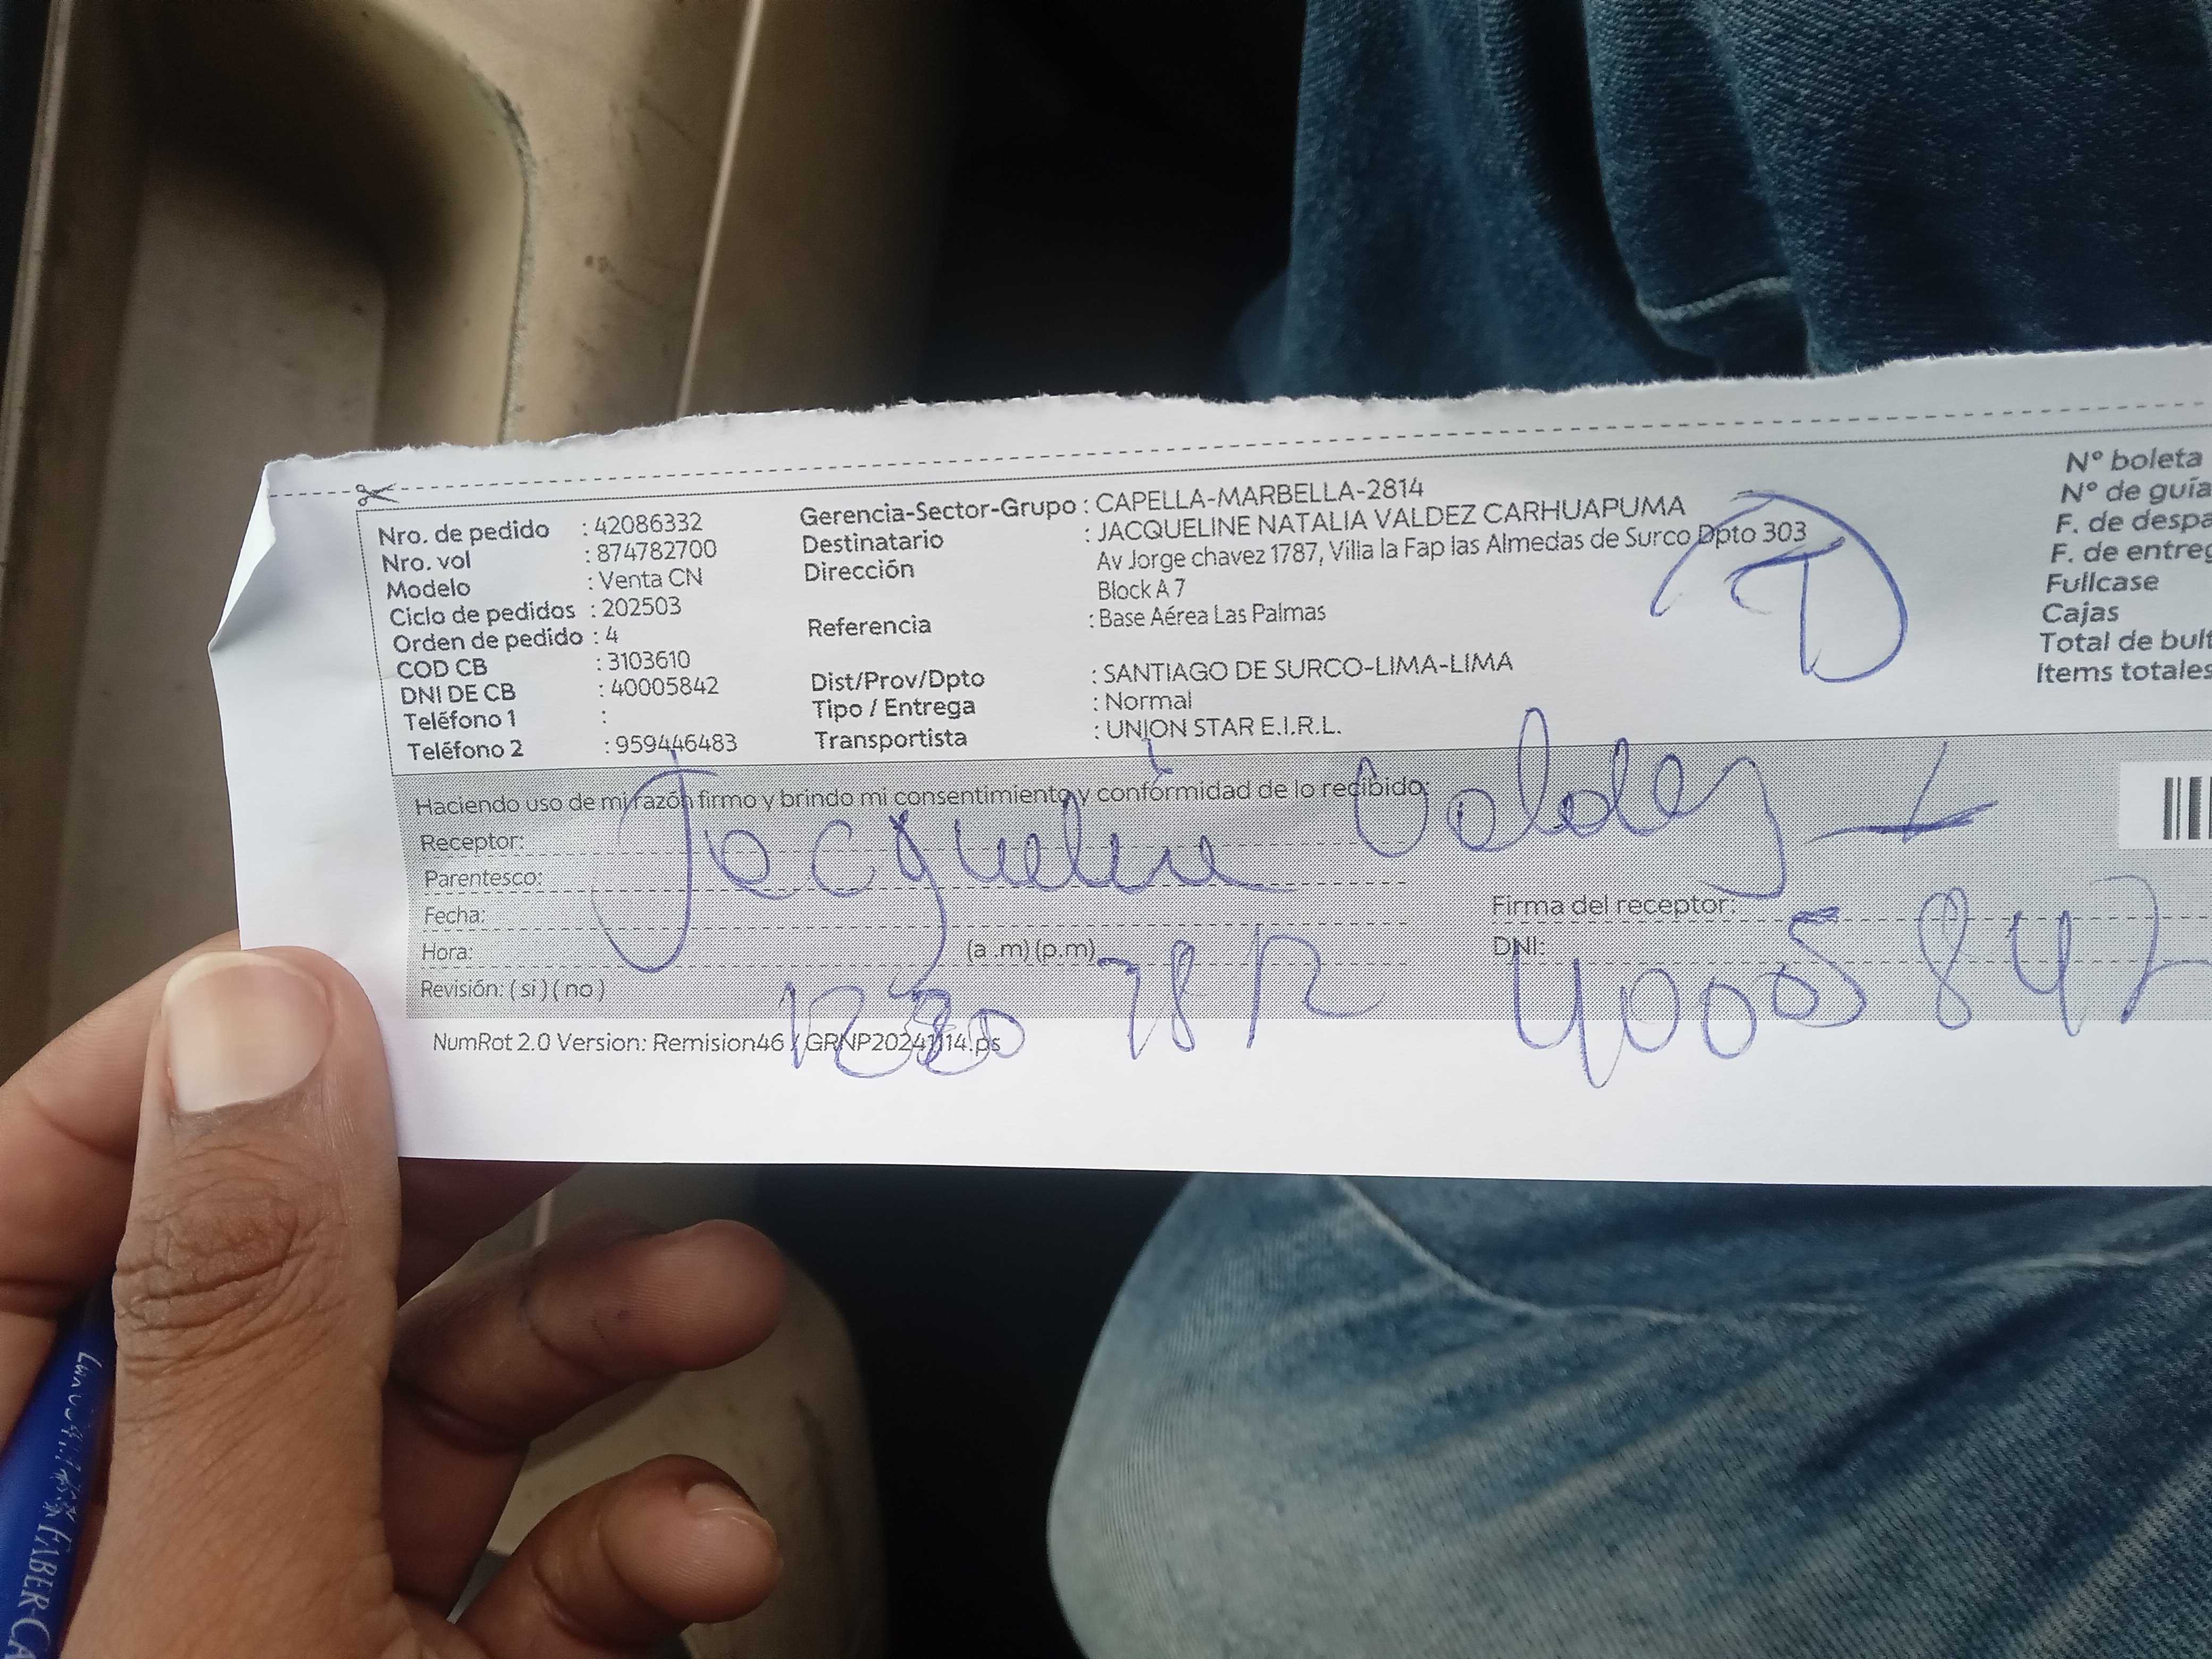 Nro. de pedido : 42086332
Nro. vol : 874782700
Modelo : Venta CN
Ciclo de pedidos : 202503
Orden de pedido : 4
COD CB : 3103610
DNI DE CB : 40005842
Teléfono 1 :
Teléfono 2 : 959446483
Gerencia-Sector-Grupo : CAPELLA-MARBELLA-2814
Destinatario : JACQUELINE NATALIA VALDEZ CARHUAPUMA
Dirección Av Jorge chavez 1787, Villa la Fap las Almedas de Surco Dpto 303
Block A 7
Referencia : Base Aérea Las Palmas
Dist/Prov/Dpto : SANTIAGO DE SURCO-LIMA-LIMA
Tipo / Entrega : Normal
Transportista : UNION STAR E.I.R.L.
N° boleta
N° de guía
F. de despa
F. de entreg
Fullcase
Cajas
Total de bult
Items totales
Haciendo uso de mi razón firmo y brindo mi consentimiento y conformidad de lo recibido:
Receptor: Jacqueline Valdez
Parentesco:
Fecha:
Hora: (a.m) (p.m)
Revisión: ( si ) ( no )
Firma del receptor:
DNI: 40005842
NumRot 2.0 Version: Remision46 / GRNP20241114.ps
FABER-CA